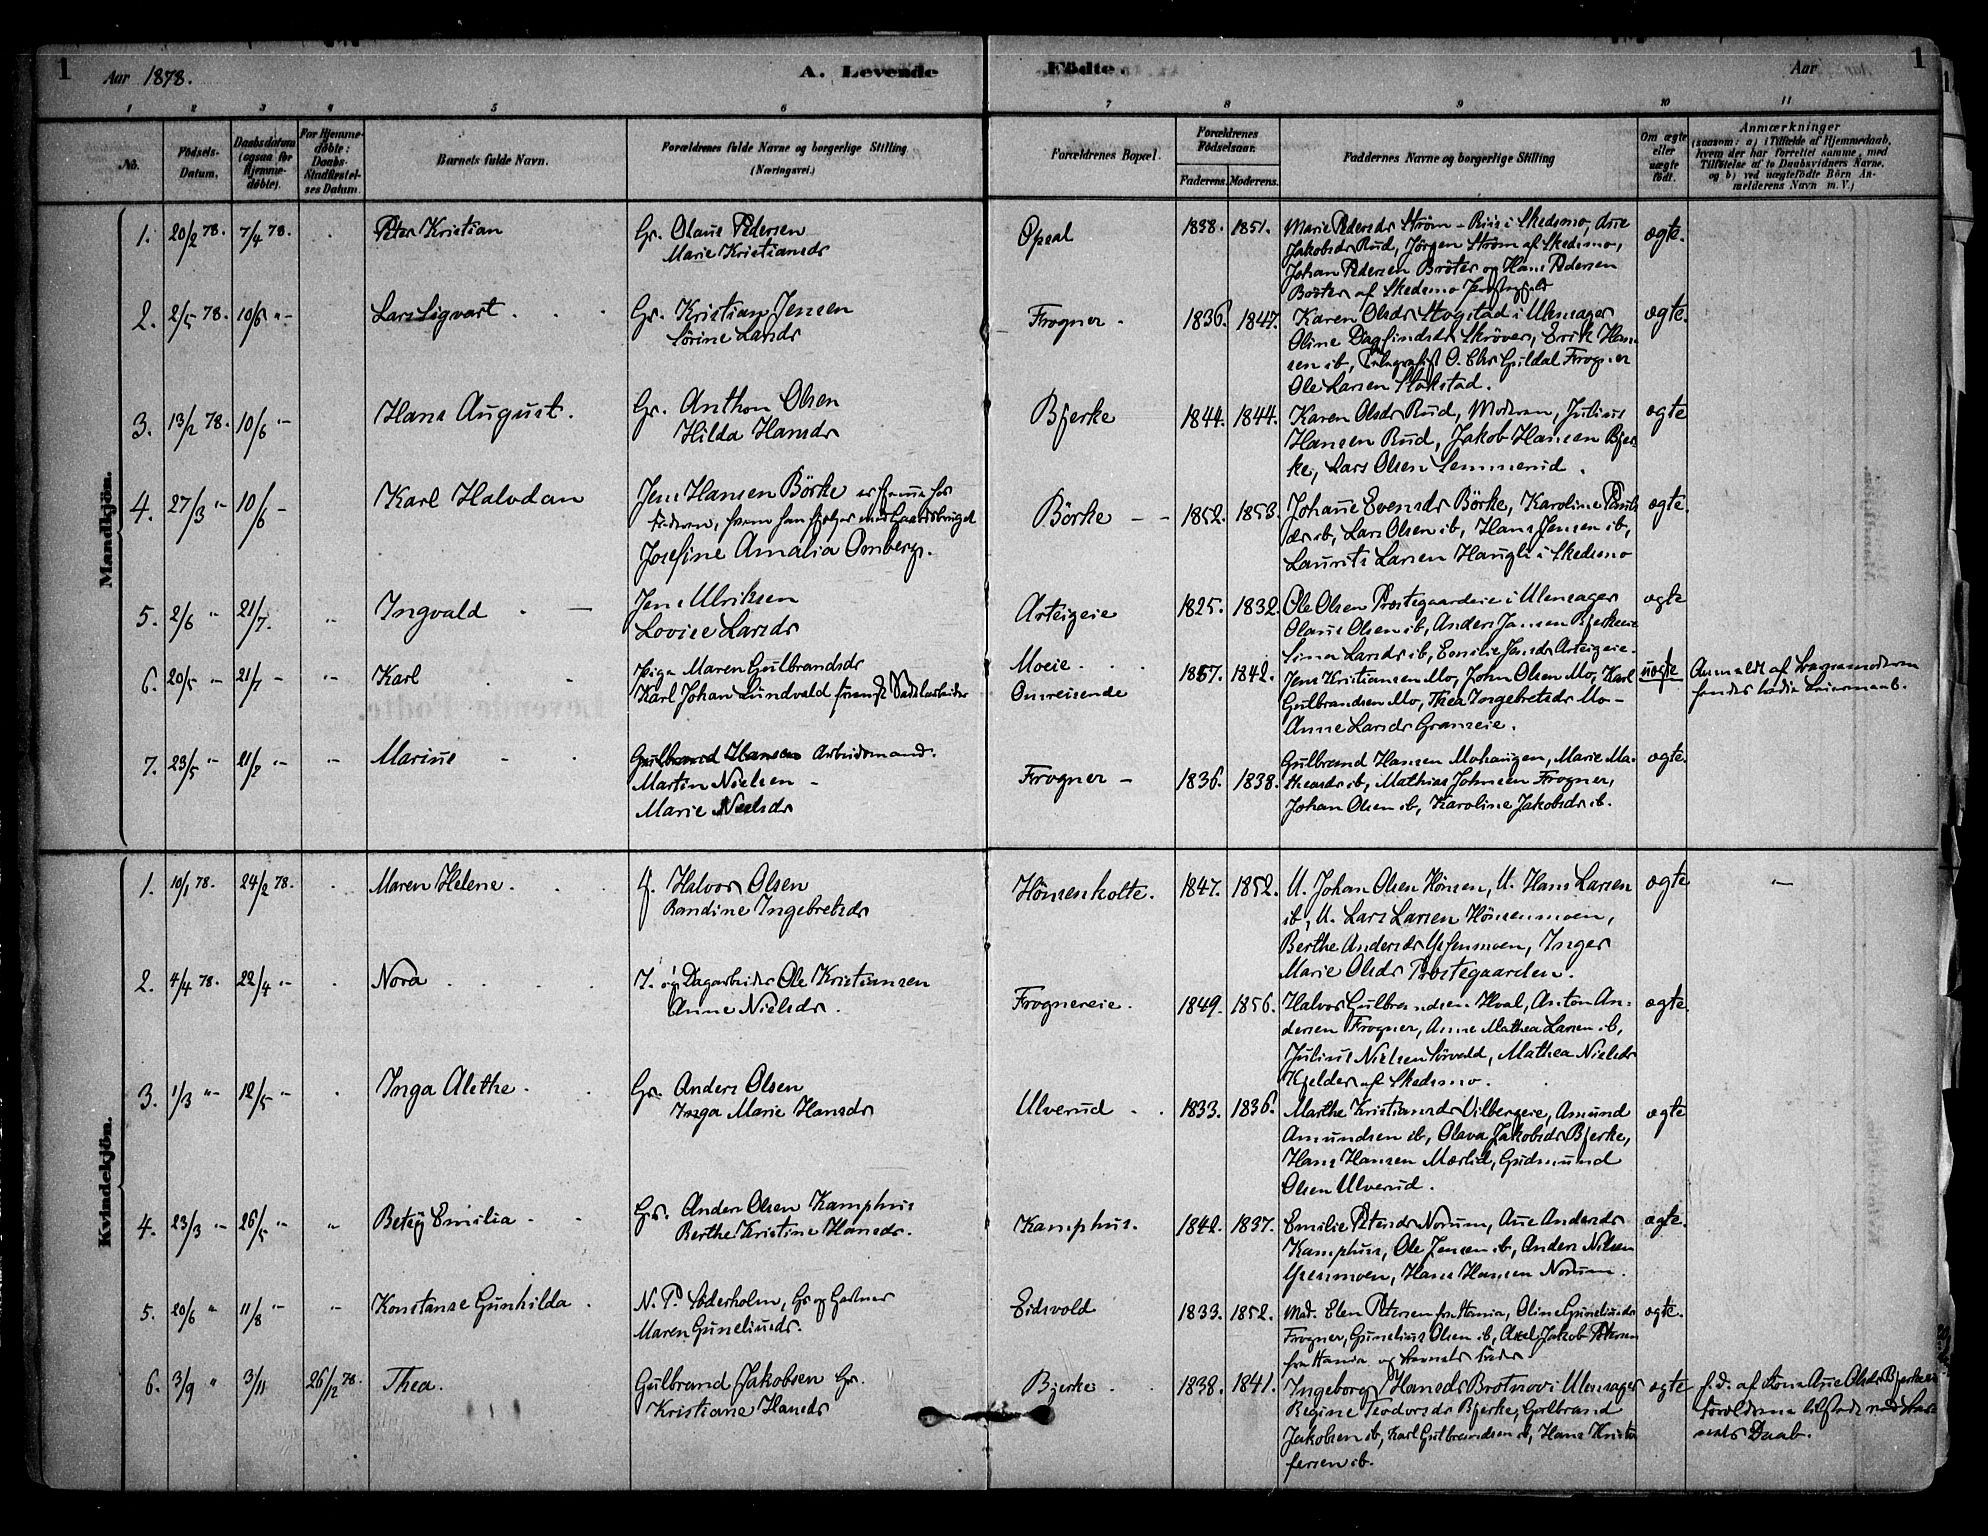 1
Aar 1878.
A. Levende
Födte.
Aar
1
1 2 3 4 5 6 7 8 9 10 11
No.
Födsels-Datum.
Daabsdatum (ogsaa for Hjemme-döbte).
For Hjemme-döbte: Daabs-Stadfæstel-ses Datum.
Barnets fulde Navn.
Forældrenes fulde Navne og borgerlige Stilling
(Næringsvei.)
Forældrenes Bopæl.
Forældrenes Födselsaar.
Faderens. Moderens.
Faddernes Navne og borgerlige Stilling
Om ægte eller uægte födt.
Anmærkninger
(saasom: a) i Tilfælde af Hjemmedaab,
hvem der har forrettet samme, med
Tilföielse af to Daabsvidners Navne,
og b) ved uægtefödte Börn An-
melderens Navn m. V.)
Mandkjön.
1. 20/2 78. 7/4 78. Peter Kristian
Gr. Olaus Pedersen
Marie Kristiansdr
Opsal
1838. 1851.
Marie Pedersdr Strøm - Riis i Skedsmo,
Jakobsdr Rud, Jørgen Strøm af Skedsmo,
Johan Pedersen Bråter og Hans Pedersen
Bråter af Skedsmo
ægte.
2. 2/5 78. 10/6 "- Lars Sigvart
Gr. Kristian Jensen
Sörine Larsdr
Frogner
1836. 1847.
Karen Olsdr Stogstad i Ullensager
Oline Dagfindsdr Skrøver, Erik Han-
sen ib, Telegrafist O. Chr Guldal Frogner
Ole Larsen Stakstad.
ægte.
3. 13/2 78. 10/6 "- Hans August.
Gr. Anthon Olsen
Hilda Hansdr
Bjerke
1844. 1844.
Karen Olsdr Rud, Moderen, Julius
Hansen Rud, Jakob Hansen Bjer-
ke, Lars Olsen Semmerud.
ægte
4. 27/3 "- 10/6 - Karl Halvdan
Jens Hansen Börke er hjemme hos
Faderen, hvem han hjelper med Gaardsbruget
Josefine Amalia Omberg.
Börke
1852. 1853.
Johanne Evensdr Börke, Karoline Pauls
dr ib, Lars Olsen ib, Hans Jensen ib,
Laurits Larsen Haugli i Skedsmo
ægte.
5. 2/6 " 21/7. " Ingvald
Jens Ulriksen
Lovise Larsdr
Arteigeie
1825. 1832.
Ole Olsen Prostegaardeie i Ullensager
Olaus Olsen ib, Anders Jansen Bjerkeeie
Sina Larsdr ib, Emilie Jansdr Arteigeie.
ægte
6. 20/5 "- 21/7 - "- Karl
Pige Maren Gulbrandsdr
Karl Johan Lundvald svensk Sadelarbeider
Moeie
Omreisende
1857. 1842.
Jens Kristiansen Mo, John Olsen Mo, Karl
Gulbrandsen Mo, Thea Ingebretsdr Mo -
Anne Larsdr Granseie.
uægte
Anmeldt af Barnemoderen
7. 23/5 "- 21/7 "- "- Marius
Gulbrand Hansen Arbeidsmand.
Martin Nielsen -
Marie Nielsdr
Frogner -
1836. 1838.
Gulbrand Hansen Mohaugen, Marie Ma-
theasdr ib, Mathias Johnsen Frogner,
Johan Olsen ib, Karoline Jakobsdr ib.
ægte.
Kvindekjön.
1. 10/1 78. 24/2 78. Maren Helene.
f. Halvor Olsen
Randine Ingebretsdr
Hönsenholte.
1847. 1852.
U. Johan Olsen Hönsen, U. Hans Larsen
ib, U. Lars Larsen Hönsenmoen,
Berthe Andersdr Yssenmoen, Inger
Marie Olsdr Prostegaarden.
ægte
"-
2. 4/4 78. 22/4 "- Nora
I. og Dagarbeider Ole Kristiansen
Anne Nielsdr.
Frognereie.
1849. 1856.
Halvor Gulbrandsen Hval, Anton An-
dersen Frogner, Anne Mathea Larsen ib,
Julius Nielsen Sörvald, Mathea Nielsdr
Kjelder af Skedsmo.
ægte.
3. 1/3 "- 12/5 "- Inga Alethe
Gr. Anders Olsen
Inga Marie Hansdr
Ulverud
1833. 1836.
Marthe Kristiansdr Vilbergeie, Amund
Amundsen ib, Olava Jakobsdr Bjerke,
Hans Hansen Mærlid, Gudmund
Olsen Ulverud.
ægte
4. 23/3 "- 26/5 "- " Betsy Emilia
Gr. Anders Olsen Kamphus
Berthe Kristine Hansdr.
Kamphus.
1842. 1837.
Emilie Petersdr Norum, Aue Andersdr
Kamphus, Ole Jensen ib, Anders Nilsen
Yssenmoen, Hans Hansen Norum.
ægte.
5. 20/6 " 11/8 "- "- Konstanse Gunhilda
N. P. Söderholm, Gr og Gartner
Maren Guneliusdr.
Eidsvold
1833. 1852.
Mad. Elen Petersen fra Hamar, Oline Guneliusdr
Frogner, Gunelius Olsen ib, Axel Jakob Petersen
fra Hamar og Barnets Fader.
ægte.
6. 3/9 " 3/11 26/12 78. Thea.
Gulbrand Jakobsen Gr.
Kristiane Hansdr
Bjerke
1838. 1841.
Ingeborg Hansdr Brotnov i Ullensager
Regine Teodorsdr Bjerke, Gulbrand
Jakobsen ib, Karl Gulbrandsen ib, Hans Kristo
fersen ib.
ægte
h. d. af Kona Aue Olsdr Bjerkeeie
Forældrene tilstede ved Bar-
nets Daab.